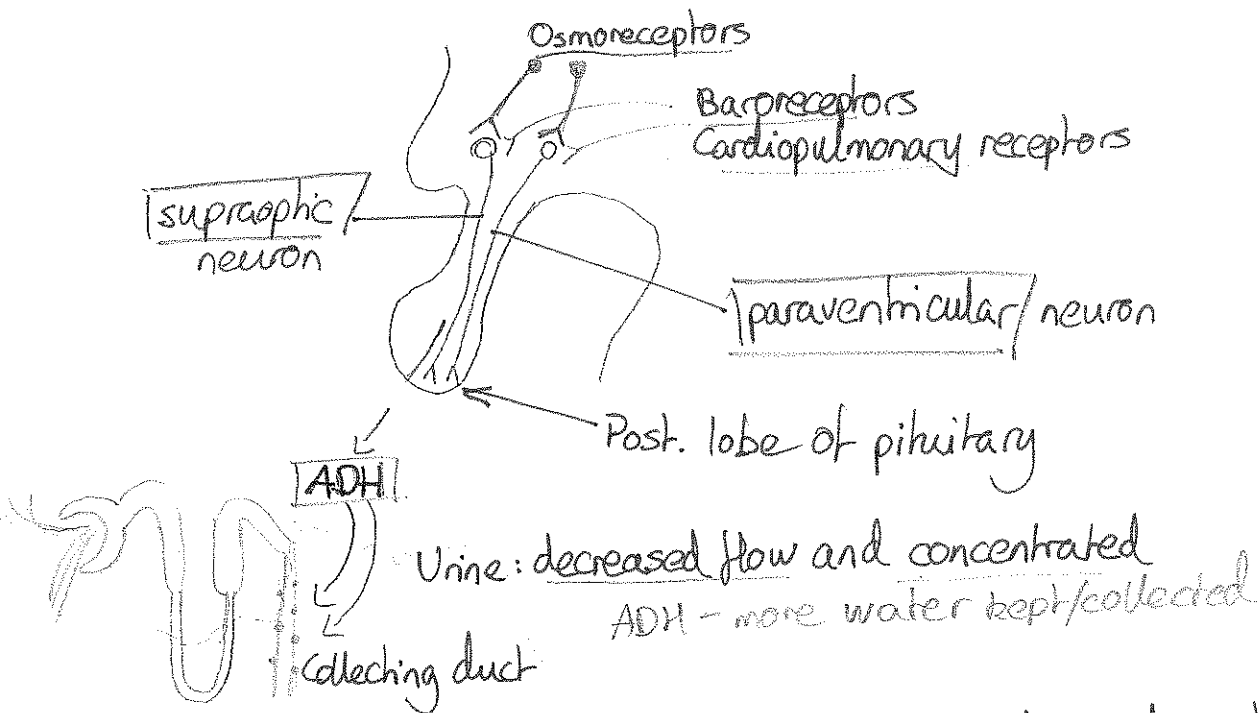 Osmoreceptors
Baroreceptors
Cardiopulmonary receptors
supraophic
neuron
paraventricular neuron
Post. lobe of pituitary
ADH
Urine: decreased flow and concentrated
ADH - more water kept/collected
Collecting duct